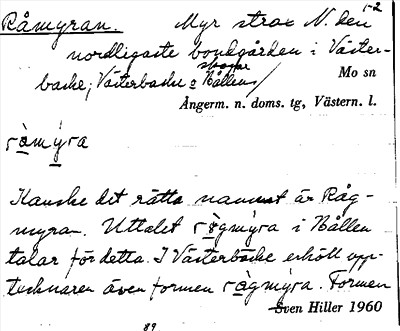 1-2
Råmyran. Myr strax N. den
nordligaste bondgården i Väster-
backe; Västerbacke o Bållens
skogar
Mo sn
Ångerm. n. doms. tg, Västern. l.
råmýra
Kanske det rätta namnet är Råg-
myran. Uttalet rògmýra i Bållen
talar för detta. I Västerbacke erhöll upp-
tecknaren även formen rågmýra. Formen
Sven Hiller 1960
89